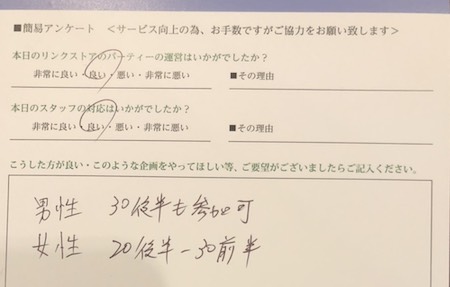 ■簡易アンケート ＜サービス向上の為、お手数ですがご協力をお願い致します＞
本日のリンクストアのパーティーの運営はいかがでしたか？
非常に良い・良い・悪い・非常に悪い ■その理由
本日のスタッフの対応はいかがでしたか？
非常に良い・良い・悪い・非常に悪い ■その理由
こうした方が良い・このような企画をやってほしい等、ご要望がございましたらご記入ください。
男性 30後半も参加可
女性 20後半－30前半